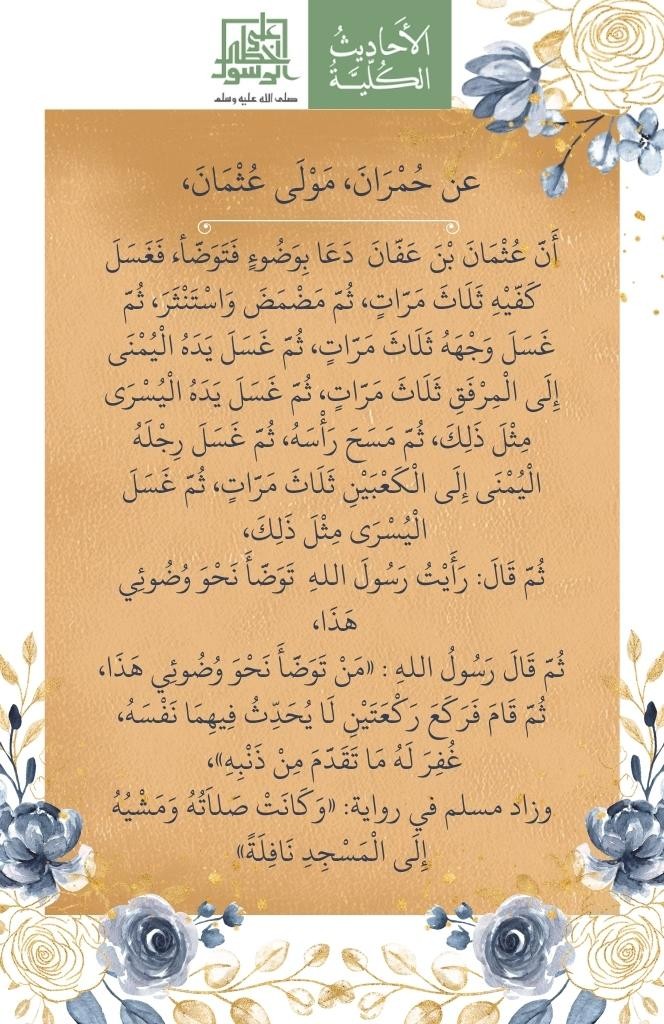 الأَحَادِيثُ
الكُلِّيَّةُ
على
خطى
الرسول
صلى الله عليه وسلم
عن حُمْرَانَ، مَوْلَى عُثْمَانَ،
أَنَّ عُثْمَانَ بْنَ عَفَّانَ دَعَا بِوَضُوءٍ فَتَوَضَّأَ، فَغَسَلَ
كَفَّيْهِ ثَلَاثَ مَرَّاتٍ، ثُمَّ مَضْمَضَ وَاسْتَنْثَرَ، ثُمَّ
غَسَلَ وَجْهَهُ ثَلَاثَ مَرَّاتٍ، ثُمَّ غَسَلَ يَدَهُ الْيُمْنَى
إِلَى الْمِرْفَقِ ثَلَاثَ مَرَّاتٍ، ثُمَّ غَسَلَ يَدَهُ الْيُسْرَى
مِثْلَ ذَلِكَ، ثُمَّ مَسَحَ رَأْسَهُ، ثُمَّ غَسَلَ رِجْلَهُ
الْيُمْنَى إِلَى الْكَعْبَيْنِ ثَلَاثَ مَرَّاتٍ، ثُمَّ غَسَلَ
الْيُسْرَى مِثْلَ ذَلِكَ،
ثُمَّ قَالَ: رَأَيْتُ رَسُولَ اللهِ تَوَضَّأَ نَحْوَ وُضُوئِي
هَذَا،
ثُمَّ قَالَ رَسُولُ اللهِ : «مَنْ تَوَضَّأَ نَحْوَ وُضُوئِي هَذَا،
ثُمَّ قَامَ فَرَكَعَ رَكْعَتَيْنِ لَا يُحَدِّثُ فِيهِمَا نَفْسَهُ،
غُفِرَ لَهُ مَا تَقَدَّمَ مِنْ ذَنْبِهِ»،
وزاد مسلم في رواية: «وَكَانَتْ صَلَاتُهُ وَمَشْيُهُ
إِلَى الْمَسْجِدِ نَافِلَةً»